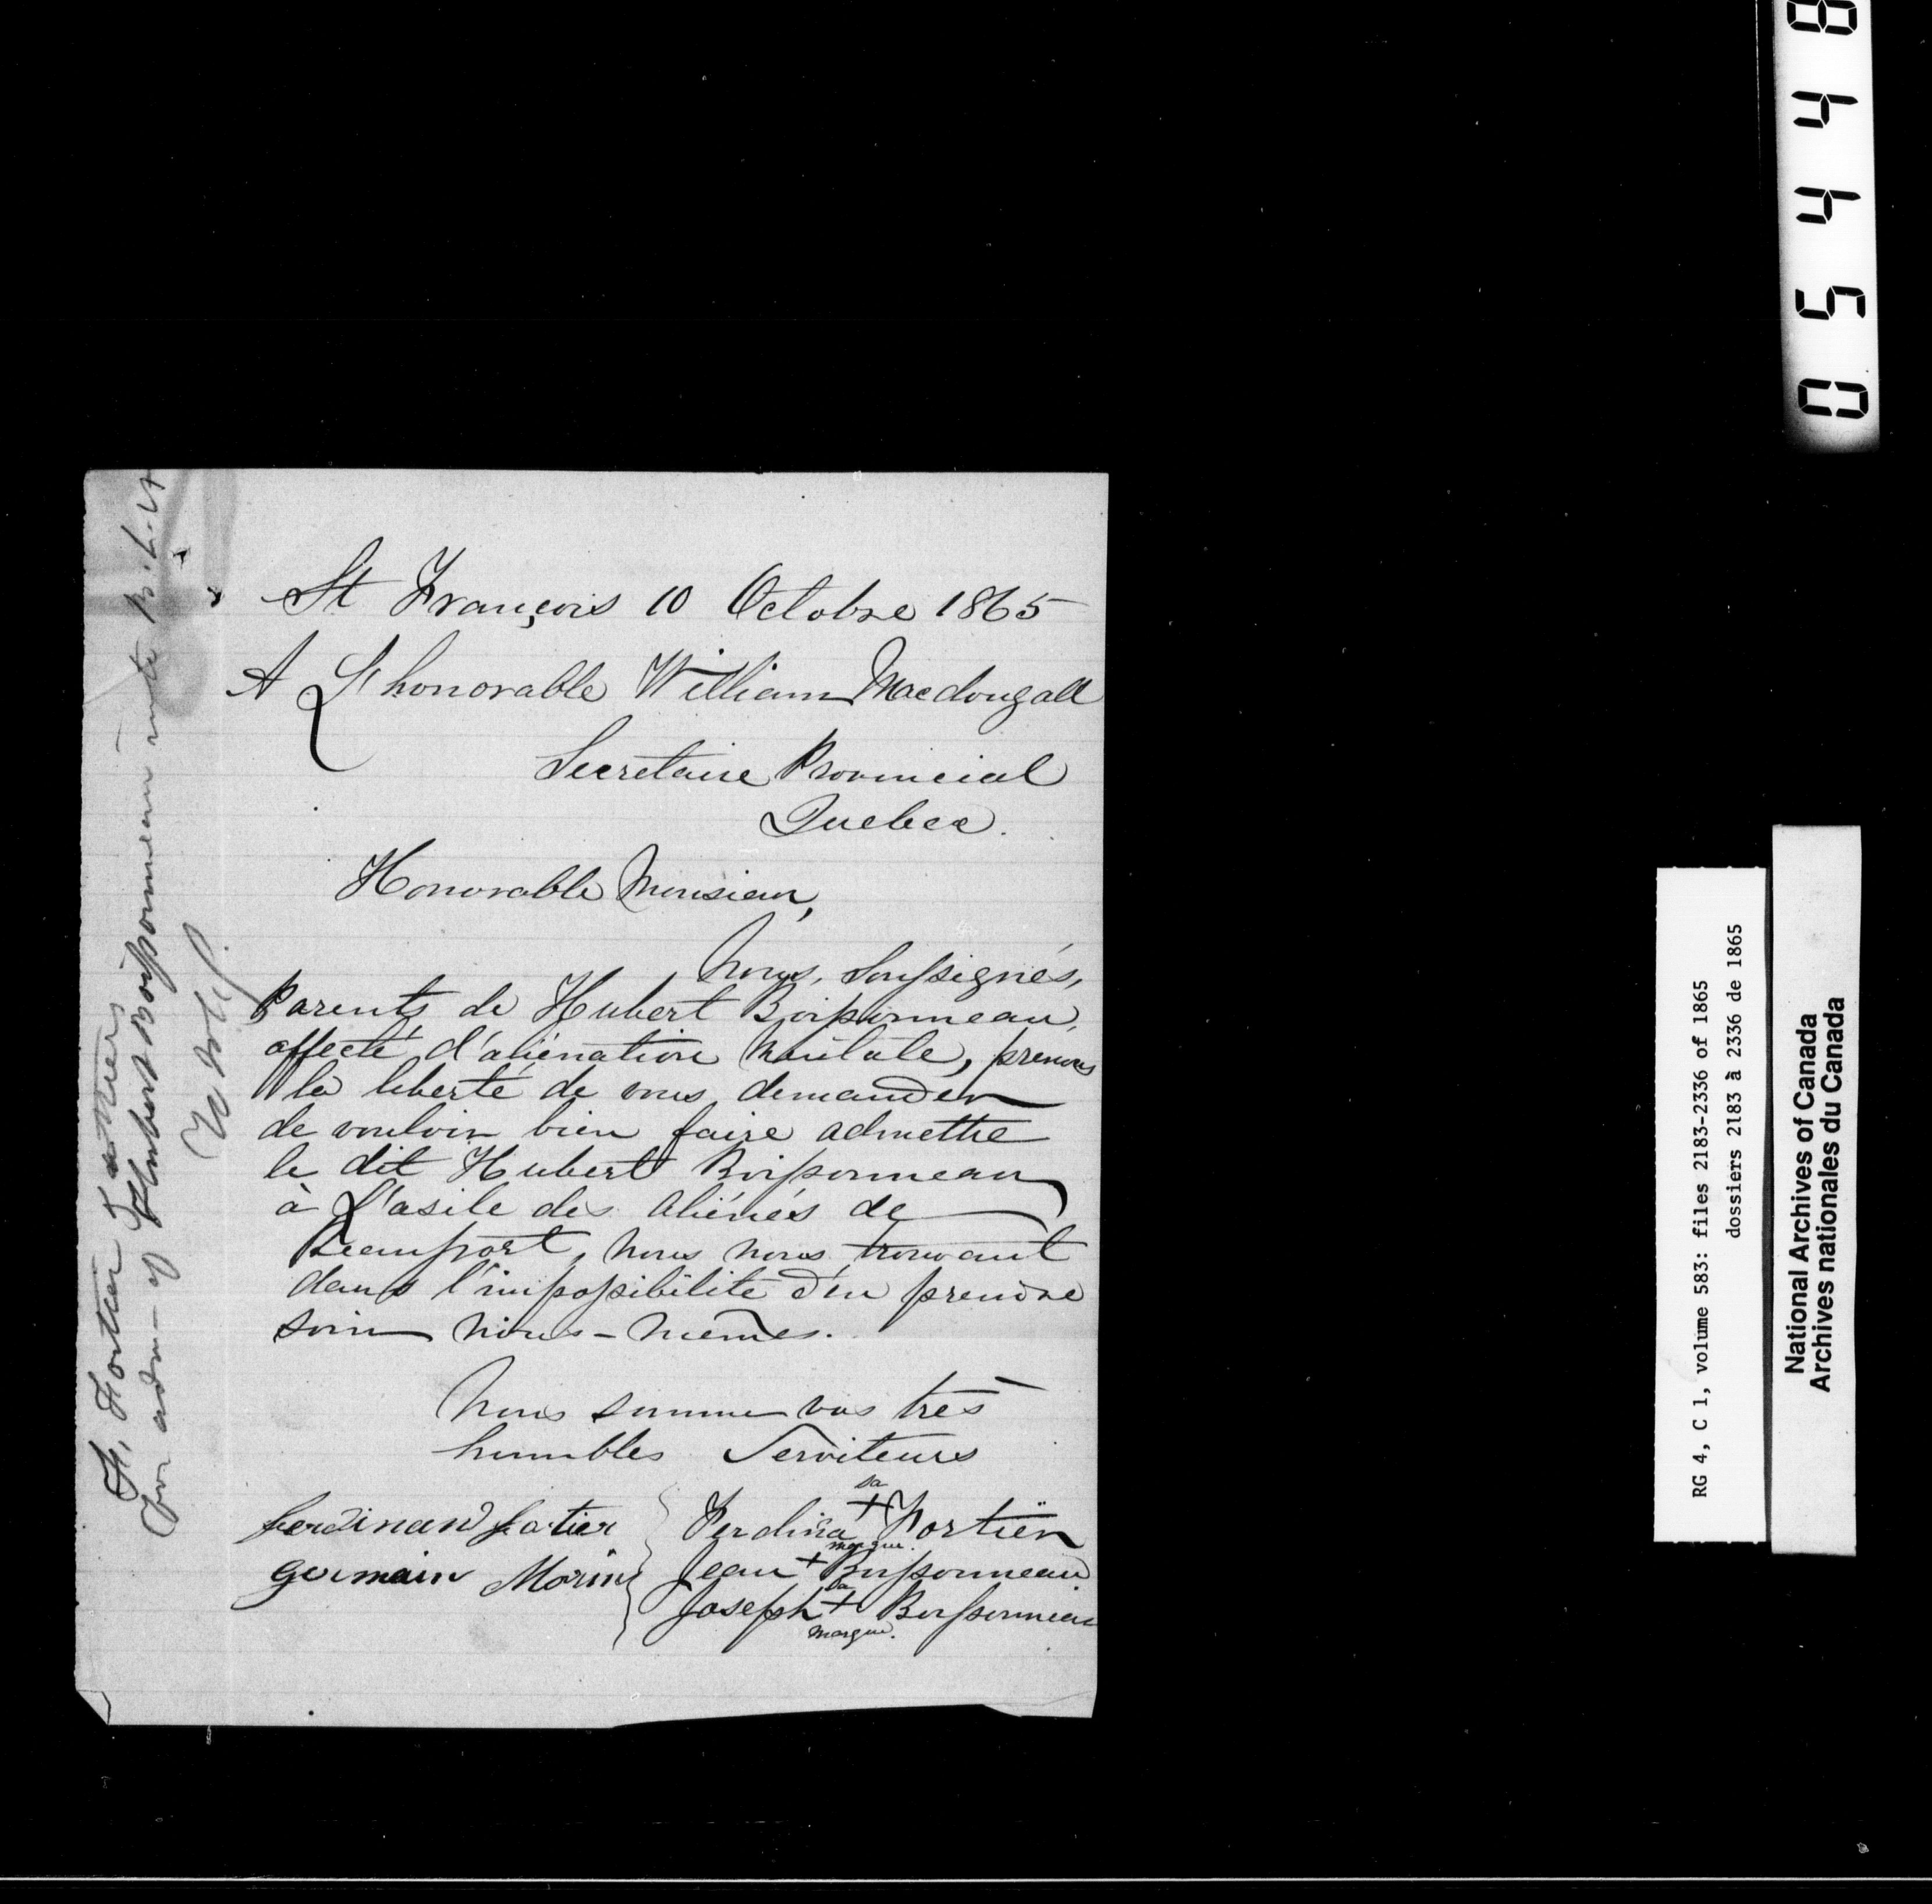 St François 10 Octobre 1865
A L'honorable William Macdougall
Secretaire Provincial
Quebec.
Honorable Monsieur,
Nous, Soussignés,
Parents de Hubert Boissonneau,
affecté d'aliénation Mentale, prenons
la liberté de vous demander
de vouloir bien faire admettre
le dit Hubert Boissonneau
à L'asile des Aliénés de
Beauport, nous nous trouvant
dans l'impossibilité d'en prendre
soin nous-mêmes.
Nous somme vos très
humbles Serviteurs
sa
Ferdina + Fortiên
marque.
Jean + Boissonneau
sa
Joseph + Boissonneau
marque.
ferdinand fortier
germain Morin
F. Fortier & others
for adm- of Humbert Boissonneau into B. L. A
05448
RG 4, C 1, volume 583: files 2183-2336 of 1865
dossiers 2183 à 2336 de 1865
National Archives of Canada
Archives nationales du Canada